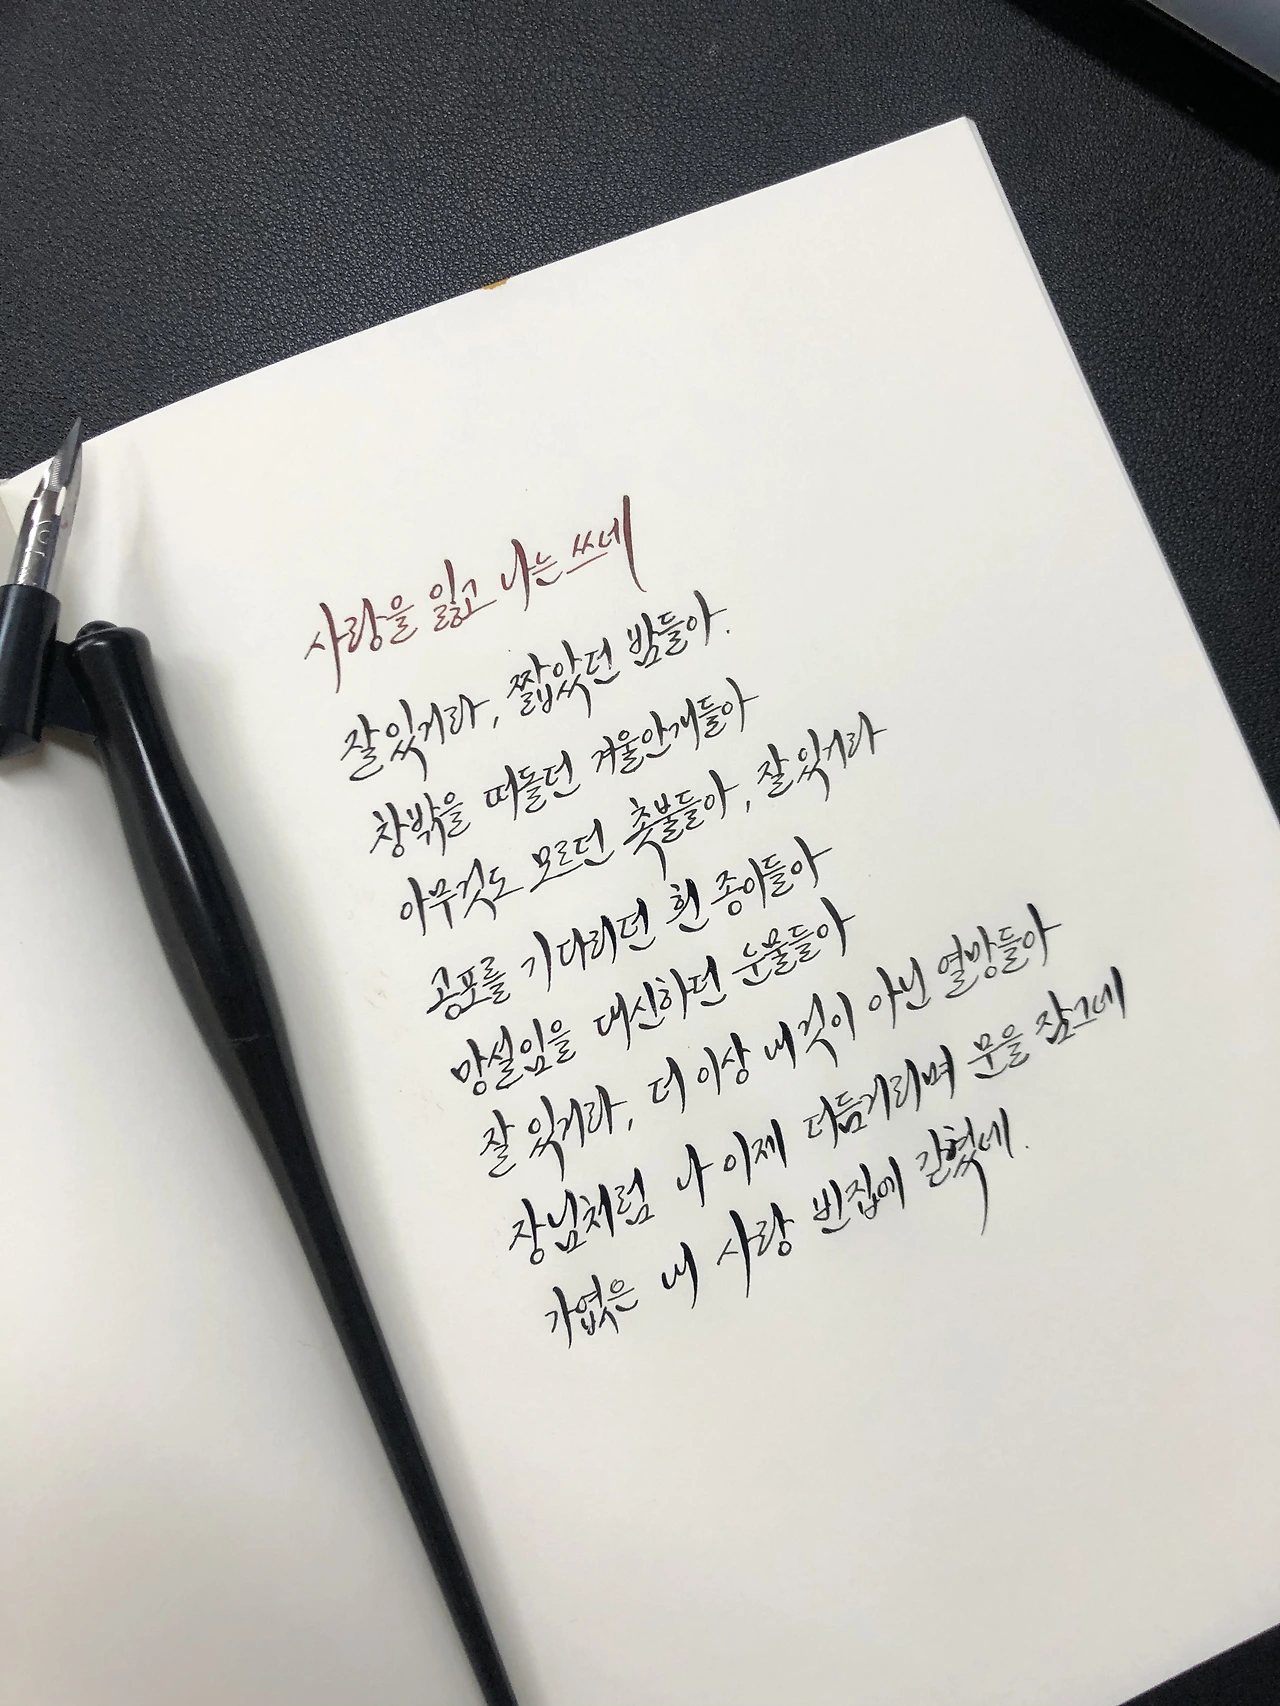 사랑을 잃고 나는 쓰네
잘있거라, 짧았던 밤들아.
창밖을 떠돌던 겨울안개들아
아무것도 모르던 촛불들아, 잘 있거라
공포를 기다리던 흰 종이들아
망설임을 대신하던 눈물들아
잘 있거라, 더 이상 내것이 아닌 열망들아
장님처럼 나 이제 더듬거리며 문을 잠그네
가엾은 내 사랑 빈집에 갇혔네.